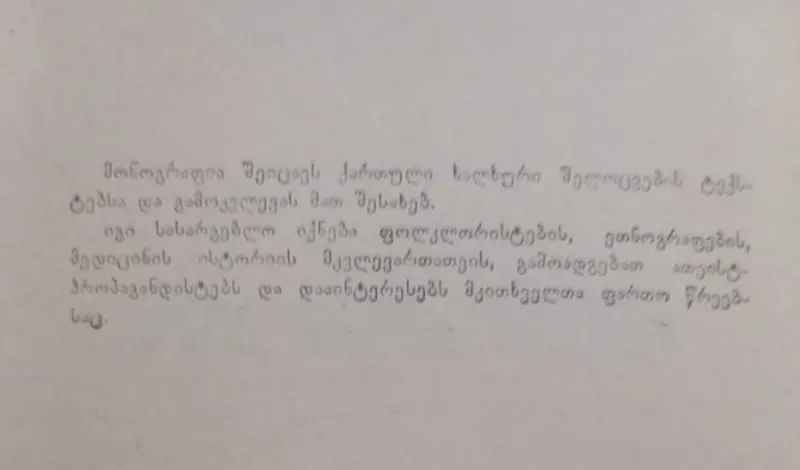 მონოგრაფია შეიცავს ქართული ხალხური შელოცვების ტექს-
ტებსა და გამოკვლევას მათ შესახებ.
იგი სასარგებლო იქნება ფოლკლორისტების, ეთნოგრაფების,
მედიცინის ისტორიის მკვლევართათვის, გამოადგებათ ათეისტ-
პროპაგანდისტებს და დააინტერესებს მკითხველთა ფართო წრეებ-
საც.